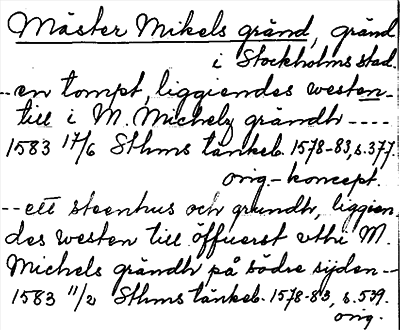 Mäster Mikels gränd, gränd
i Stockholms stad.
--en tompt, liggiendes westen-
till i M. Michelz grändh ----
1583 17/6 Sthms tänkeb. 1578-83, s. 377.
orig.-koncept.
--ett steenhus och grundh, liggien
des westen till öffuerst vthi M.
Michels grändh på södre sijden--
1583 11/2 Sthms tänkeb. 1578-83, s. 539.
orig.